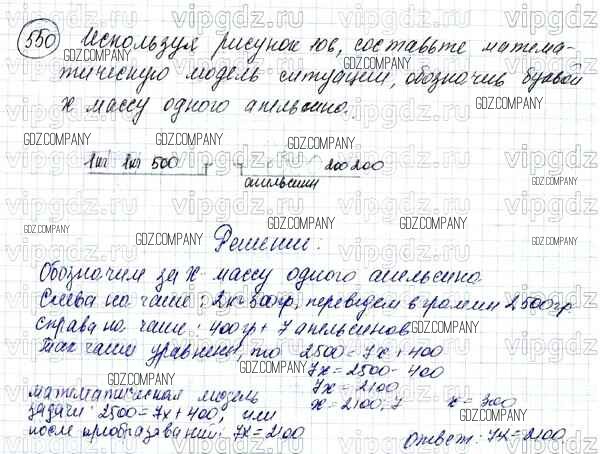 550 Используя рисунок 10в, составьте матема-
тическую модель ситуации, обозначив буквой
x массу одного апельсина.
1кг 1кг 500 200 200
апельсин
Решении:
Обозначим за x массу одного апельсина
Слева на чаше: 2кг 500гр, переведем в граммы 2500гр
Справа на чаше: 400гр + 7 апельсинов
Так чаши уравнены, то 2500 = 7x + 400
7x = 2500 - 400
7x = 2100
x = 2100:7 x = 300
математическая модель
задачи: 2500 = 7x + 400, или
после преобразований: 7x = 2100
Ответ: 7x = 2100
vipgdz.ru
GDZ.COMPANY